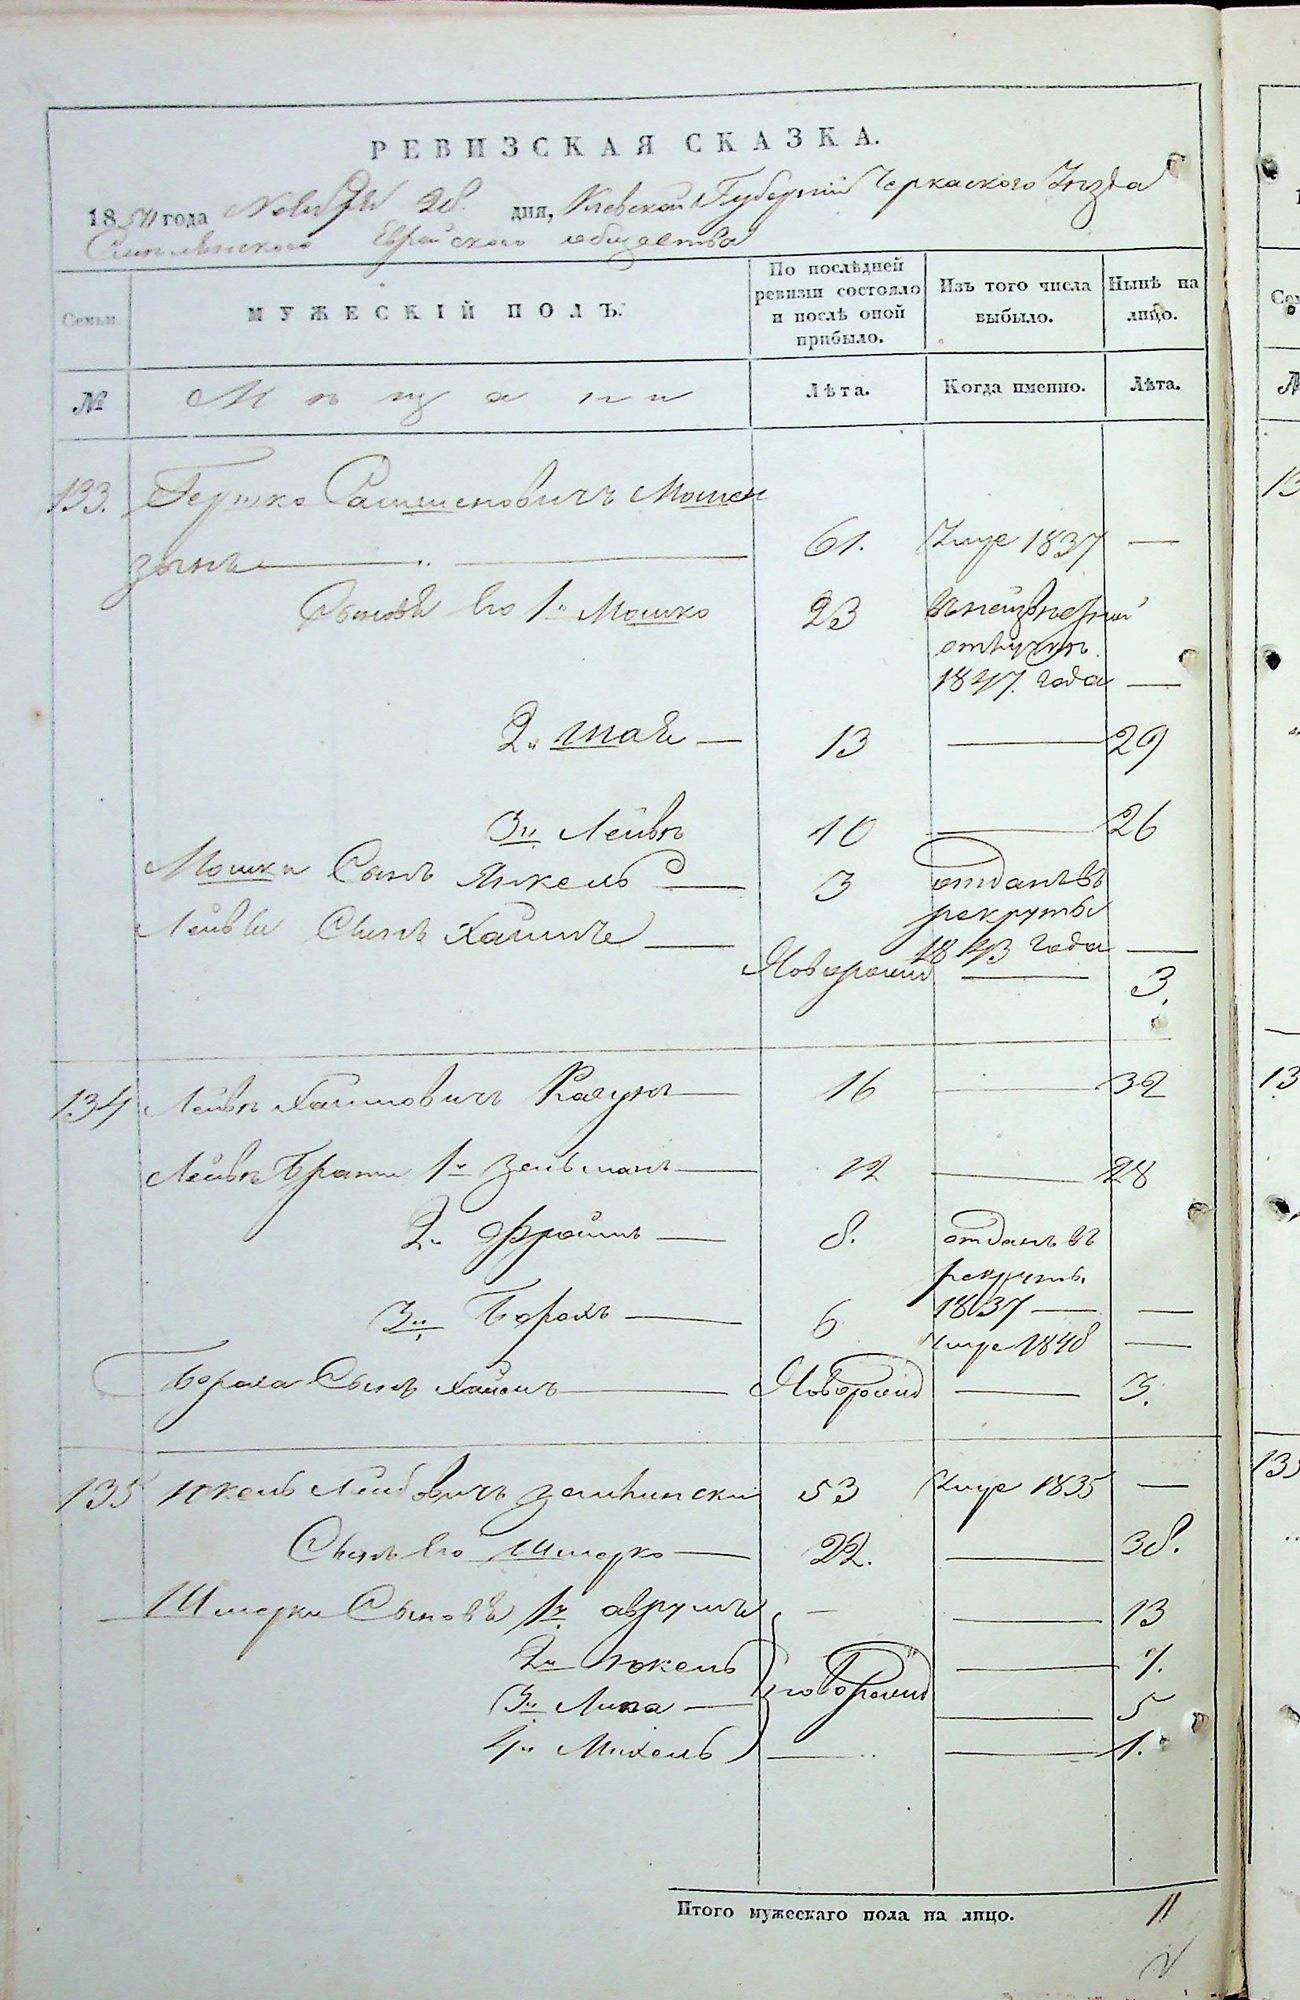 РЕВИЗСКАЯ СКАЗКА.
1850 года Ноября 28 дня, Киевской Губернии Черкаского Уезда
Еврейского общества
Семьи.
МУЖЕСКІЙ ПОЛЪ.
По послѣдней ревизіи состояло и послѣ оной прибыло.
Изъ того числа выбыло.
Нынѣ на лицо.
№
Мещане
Лѣта.
Когда именно.
Лѣта.
133. Гершко Мошен
зонъ 61. Умре 1837 —
Сыновья Его 1й Мошко 23
отлучкѣ
1847. года —
2й 13 — 29
3й Лейба 10 — 26
Мошки Сынъ Янкель 3 отданъ въ
рекруты
1843 года —
Лейбы Сынъ Хаимъ
Новорожд — 3.
134 Лейба Хаимовичъ Кагунъ 16 — 32
Лейбы Братья 1й Зельманъ — 12 — 28
2й Фроимъ — 8. отданъ въ
рекруты.
1837 — —
3й Борохъ — 6 Умре 1848 —
Бороха Сынъ Хаимъ — Новорожд — 3.
135 Юкель Лейбовичъ 53 Умре 1835 —
Сынъ Его Шмерко — 22. — 38.
Шмерки Сыновья 1й Аврумъ — — 13
2й Юкель Новорожд — 7.
3й Липа — — 5
4й Михель — — 1.
Итого мужескаго пола на лицо. 11